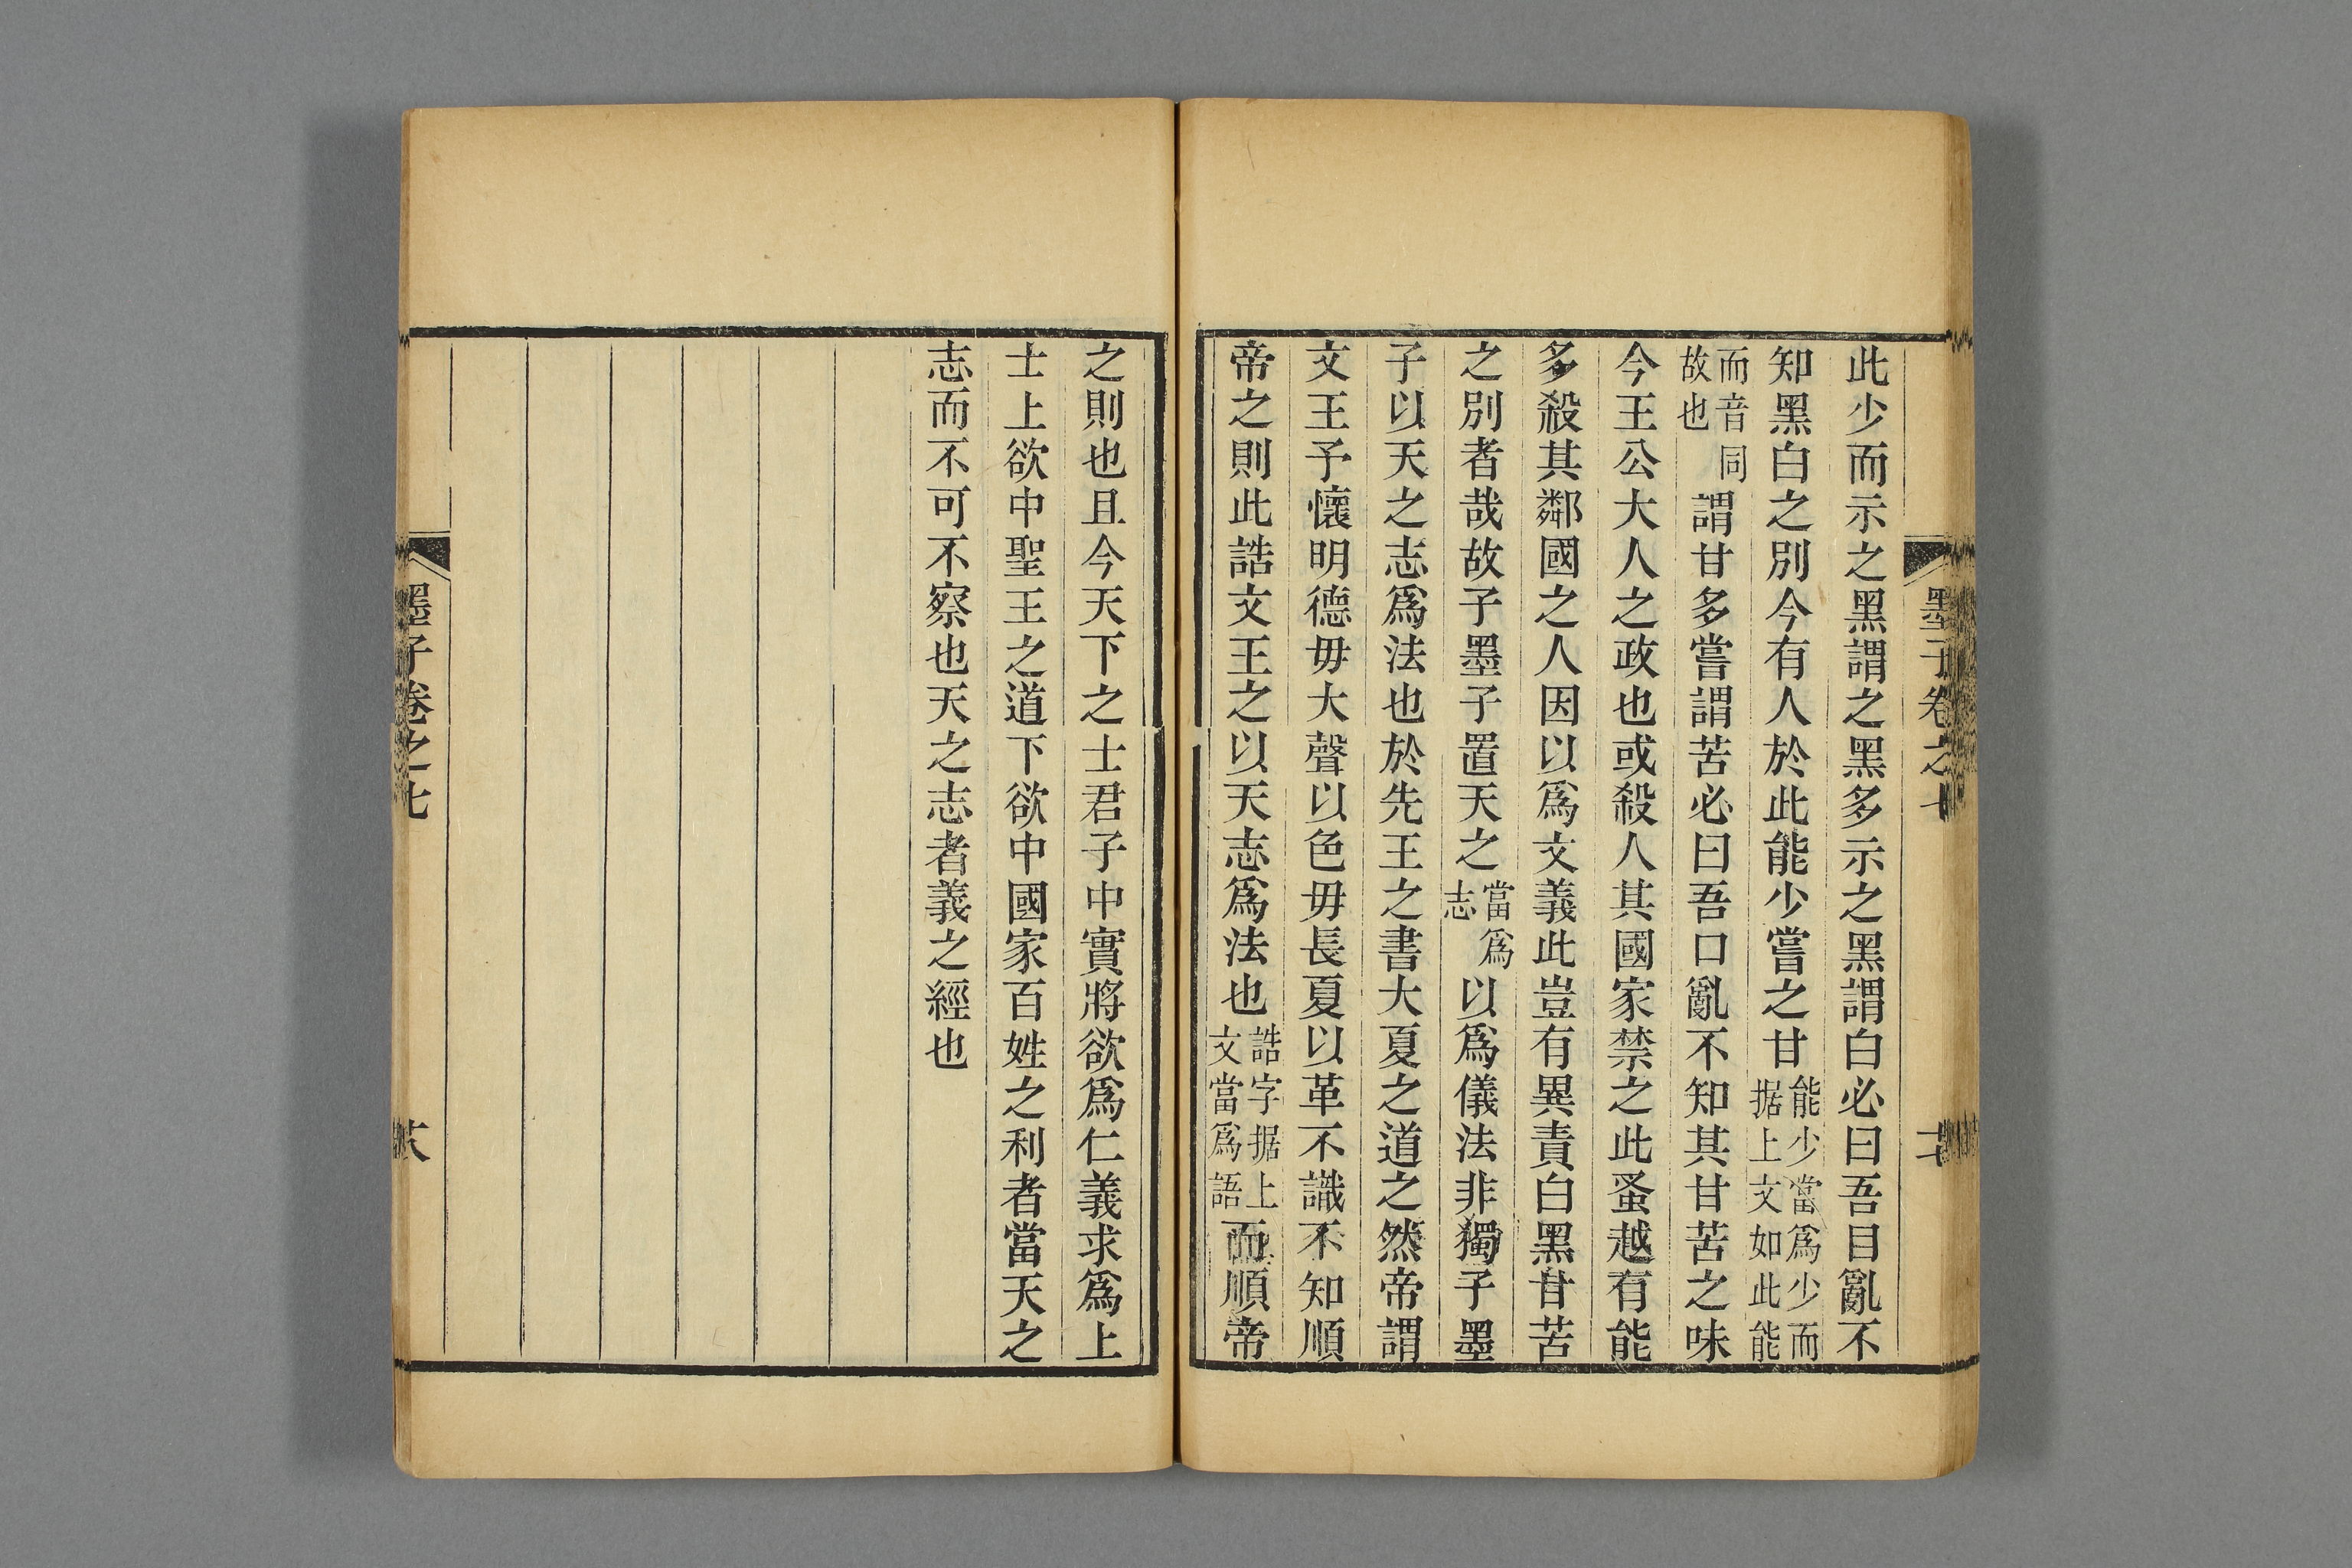 墨子卷之七
此少而示之黑謂之黑多示之黑謂白必曰吾目亂不
知黑白之別今有人於此能少嘗之甘能少當爲少而据上文如此能
而音同故也謂甘多嘗謂苦必曰吾口亂不知其甘苦之味
今王公大人之政也或殺人其國家禁之此蚤越有能
多殺其鄰國之人因以爲文義此豈有異責白黑甘苦
之別者哉故子墨子置天之當爲志以爲儀法非獨子墨
子以天之志爲法也於先王之書大夏之道之然帝謂
文王予懷明德毋大聲以色毋長夏以革不識不知順
帝之則此誥文王之以天志爲法也誥字据上文當爲語而順帝
之則也且今天下之士君子中實將欲爲仁義求爲上
士上欲中聖王之道下欲中國家百姓之利者當天之
志而不可不察也天之志者義之經也
墨子卷之七